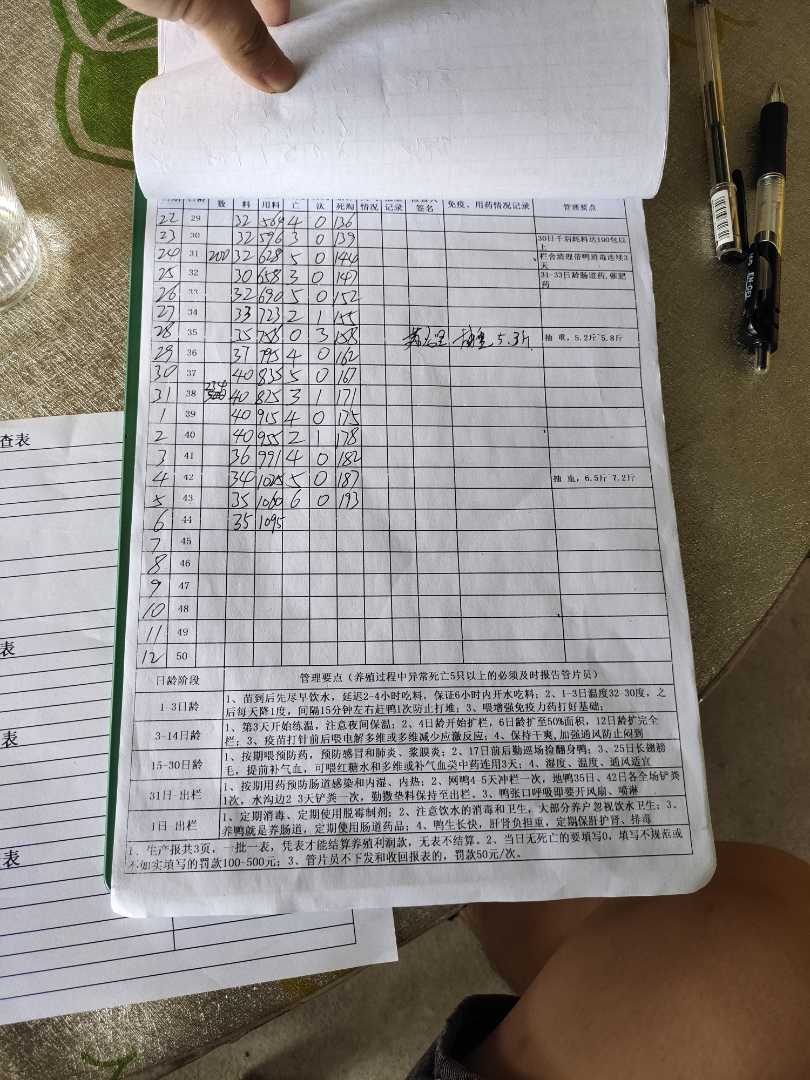 日龄 数 料 用料 亡 汰 死淘 情况 记录 签名 免疫、用药情况记录 管理要点
22 29 32 564 4 0 136
23 30 32 596 3 0 139 30日千后耗料达190包以上
24 31 200 32 628 5 0 144 栏舍清理带鸭消毒连续3天
25 32 30 658 3 0 147 31-33日龄肠道药,催肥药
26 33 32 690 5 0 152
27 34 33 723 2 1 155
28 35 35 758 0 3 158 抽重5.3斤 抽 重,5.2斤~5.8斤
29 36 37 795 4 0 162
30 37 40 835 5 0 167
31 38 40 825 3 1 171
1 39 40 915 4 0 175
2 40 40 955 2 1 178
3 41 36 991 4 0 182
4 42 34 1025 5 0 187 抽 重,6.5斤 7.2斤
5 43 35 1060 6 0 193
6 44 35 1095
7 45
8 46
9 47
10 48
11 49
12 50
日龄阶段 管理要点(养殖过程中异常死亡5只以上的必须及时报告管片员)
1-3日龄 1、苗到后先尽早饮水,延迟2-4小时吃料,保证6小时内开水吃料;2、1-3日温度32-30度,之
后每天降1度,间隔15分钟左右赶鸭1次防止打堆;3、喂增强免疫力药打好基础;
3-14日龄 1、第3天开始练温,注意夜间保温;2、4日龄开始扩栏,6日龄扩至50%面积,12日龄扩完全
栏;3、疫苗打针前后喂电解多维或多维减少应激反应;4、保持干爽,加强通风防止闷到
15-30日龄 1、按期喂预防药,预防感冒和肺炎、浆膜炎;2、17日前后勤巡场捡翻身鸭;3、25日长翅膀
毛,提前补气血,可喂红糖水和多维或补气血类中药连用3天;4、湿度、温度、通风适宜
31日-出栏 1、按期用药预防肠道感染和内湿、内热;2、网鸭4-5天冲栏一次,地鸭35日、42日各全场铲粪
1次,水沟边2-3天铲粪一次,勤撒垫料保持至出栏。3、鸭张口呼吸即要开风扇、喷淋
1日-出栏 1、定期消毒、定期使用脱霉制剂;2、注意饮水的消毒和卫生,大部分养户忽视饮水卫生;3、
养鸭就是养肠道,定期使用肠道药品;4、鸭生长快,肝肾负担重,定期保肝护肾、排毒
1、生产报共3页,一批一表,凭表才能结算养殖利润款,无表不结算。2、当日无死亡的要填写0,填写不规范或
不如实填写的罚款100-500元;3、管片员不下发和收回报表的,罚款50元/次。
查表
表
表
表